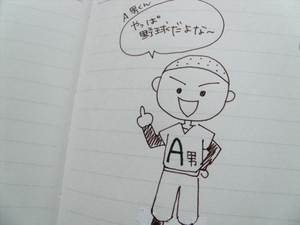 A男くん
やっぱ
野球だよな〜
A男